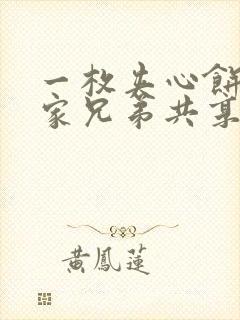 一枚夹心餅
家兄弟共享
黃鳳蓮